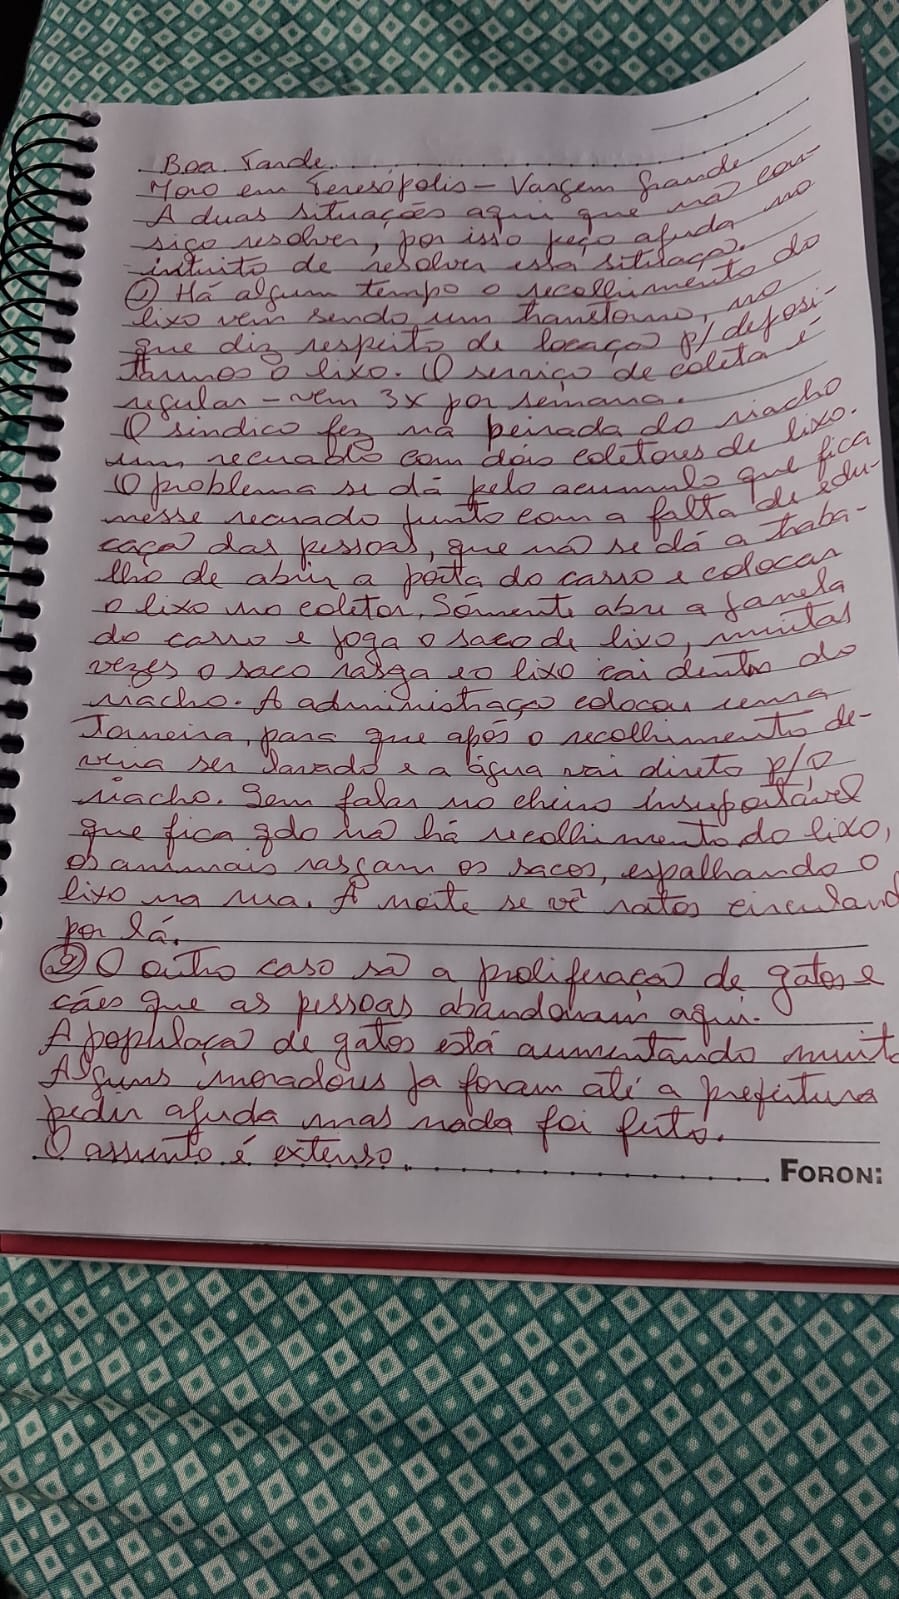 Boa Tarde.
Moro em Teresópolis - Vargem Grande
A duas situações aqui que não con-
sigo resolver, por isso peço ajuda no
intuito de resolver esta situação.
① Há algum tempo o recolhimento do
lixo vem sendo um transtorno, no
que diz respeito de locação p/ deposi-
tarmos o lixo. O serviço de coleta é
regular - vem 3x por semana.
O sindico fez na beirada do riacho
um recuado com dois coletores de lixo.
O problema se dá pelo acumulo que fica
nesse recuado junto com a falta de edu-
caçao das pessoas, que não se dá a traba-
lho de abrir a porta do carro e colocar
o lixo no coletor. Sómente abre a janela
do carro e joga o saco de lixo, muitas
vezes o saco rasga e o lixo cai dentro do
riacho. A administração colocou uma
Torneira, para que após o recolhimento de-
veria ser lavado e a água vai direto p/ o
riacho. Sem falar no cheiro insuportável
que fica qdo não há recolhimento do lixo,
os animais rasgam os sacos, espalhando o
lixo na rua. A noite se vê ratos circuland
por lá.
② O outro caso são a proliferação de gatos e
cães que as pessoas abandonam aqui.
A população de gatos está aumentando muito
Alguns moradores ja foram até a prefeitura
pedir ajuda mas nada foi feito.
O assunto é extenso.
FORONI